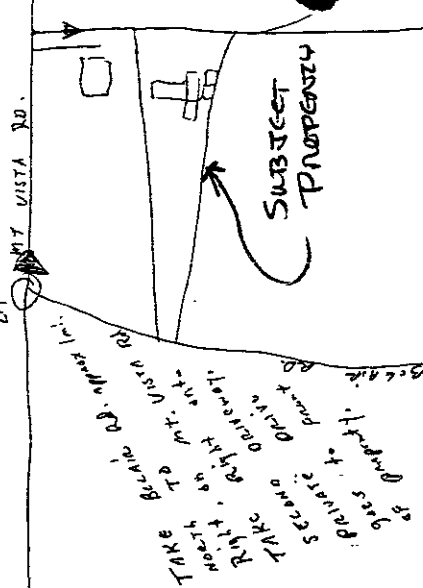 MT VISTA RD.
SUBJECT
PROPERTY
BELAIR RD.
TAKE BELAIR RD. approx 1 mi.
NORTH TO MT. VISTA Rd
Right, Right onto
TAKE DRIVEWAY.
SECOND DRIVE
PRIVATE front
goes to
of property.